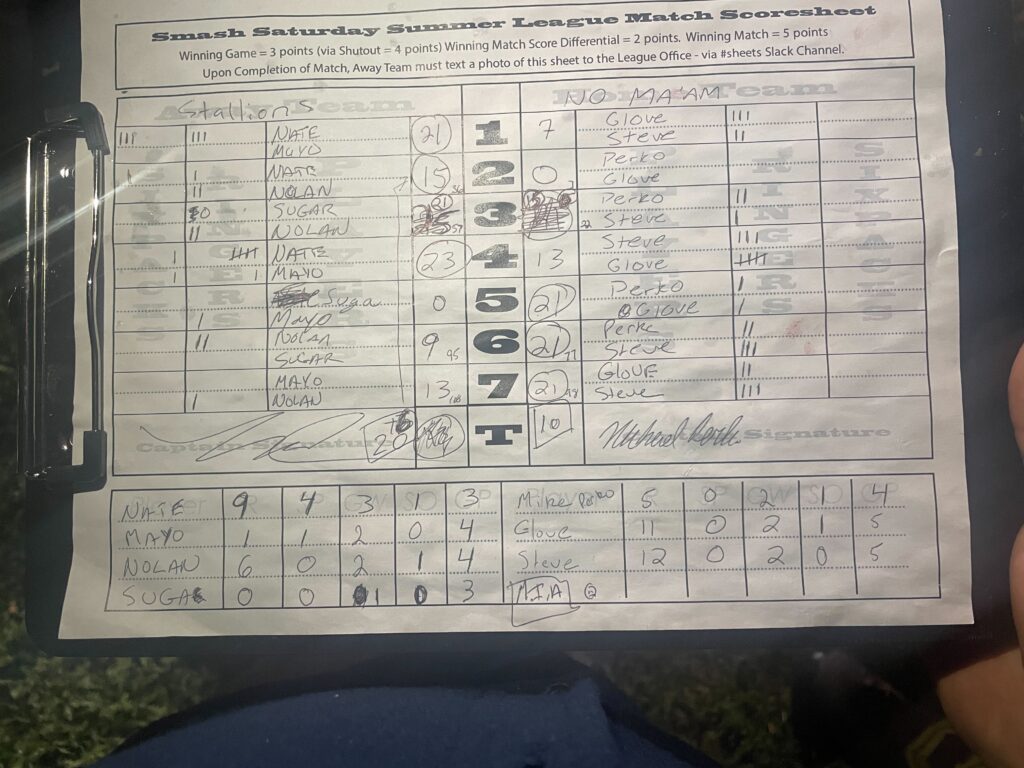 Smash Saturday Summer League Match Scoresheet
Winning Game = 3 points (via Shutout = 4 points) Winning Match Score Differential = 2 points. Winning Match = 5 points
Upon Completion of Match, Away Team must text a photo of this sheet to the League Office - via #sheets Slack Channel.
Stallions Team NO MA'AM Team
NATE 21 1 7 Glove
MAYO Steve
NATE 15 2 0 Perko
NOLAN Glove
SUGAR 21 3 15 Perko
NOLAN 57 Steve
NATE 23 4 13 Steve
MAYO Glove
Suga 0 5 21 Perko
Mayo Glove
Nolan 9 95 6 21 Perko
SUGAR Steve
MAYO 13 7 21 GLOVE
NOLAN Steve
Captain Signature 20 T 10 Michael Perko Signature
NATE 9 4 3 1 3 Mike Perko 5 0 2 1 4
MAYO 1 1 2 0 4 Glove 11 0 2 1 5
NOLAN 6 0 2 1 4 Steve 12 0 2 0 5
SUGAR 0 0 1 0 3